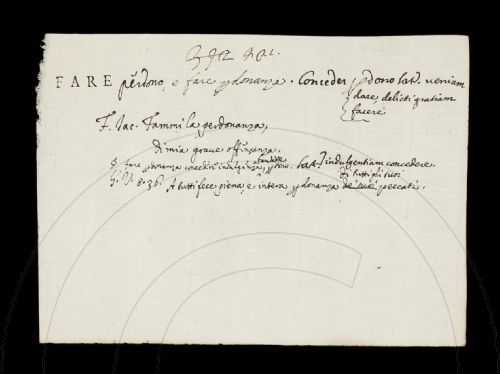 FARE perdono, e fare pdonanza. Conceder pdono. Lat. veniam
dare, delicti gratiam
facere
F. Iac. Fammi la perdonanza,
Di mia grave offensanza.
§ fare pdonanza concedere indulgenza, pdono. Lat. indulgentiam concedere.
di tutti gli suoi
G. V. 8. 36. A tutti fece piena, e intera pdonanza di suoi peccati.